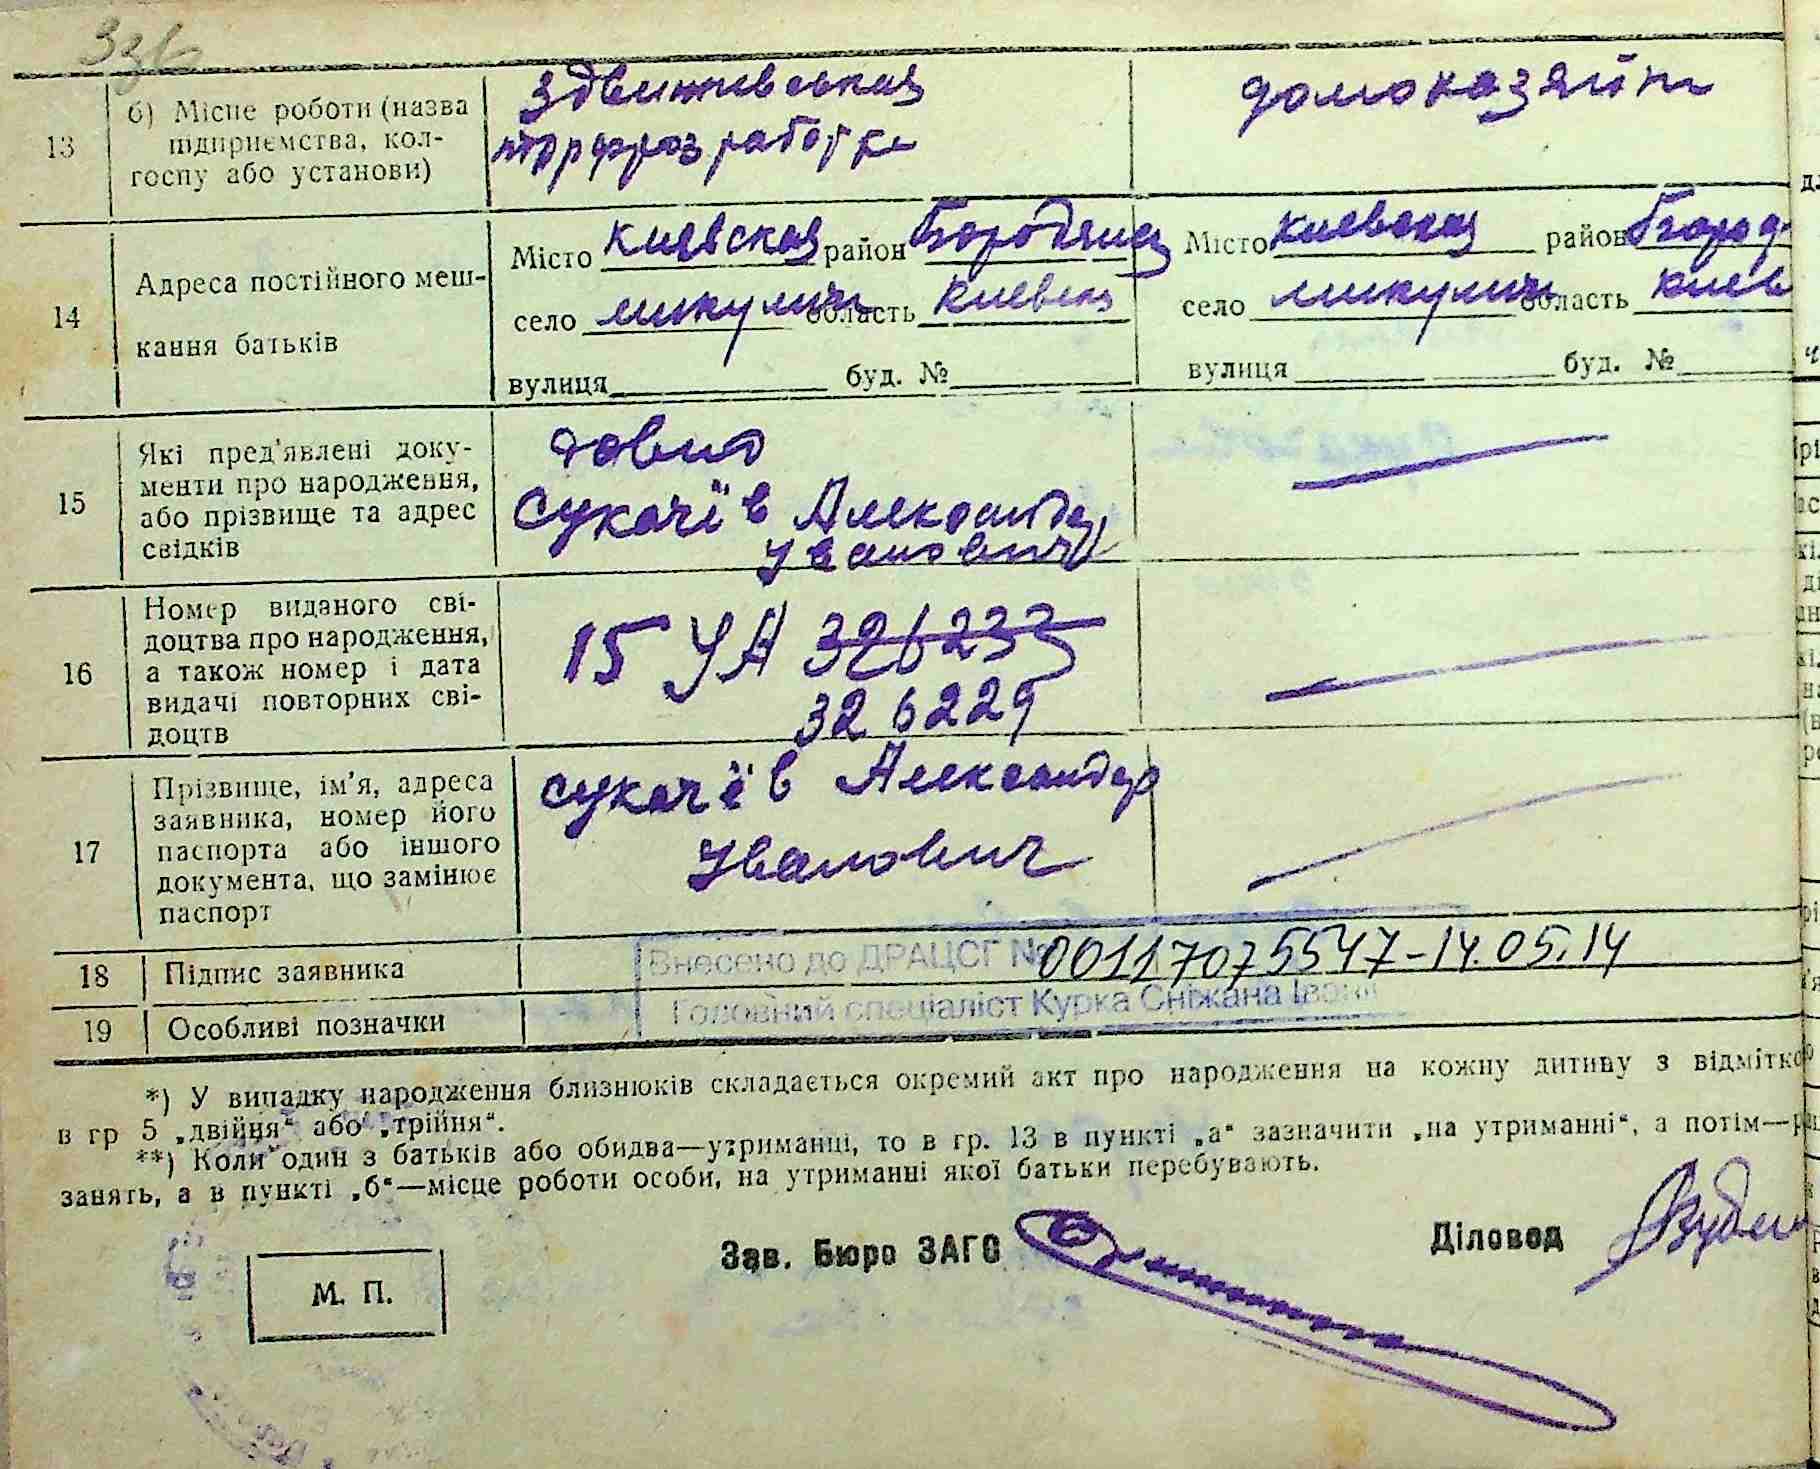 33в
13
б) Місце роботи (назва
підприємства, кол-
госпу або установи)
Здвижевськая
торфрозработка
домохазяйк
14
Адреса постійного меш-
кання батьків
Місто Киевская район Бородянс
село Микуличи область Киевск
вулиця буд. №
Місто Киевская район Бород
село Микуличи область Киев
вулиця буд. №
15
Які пред'явлені доку-
менти про народження,
або прізвище та адрес
свідків
довид
Сукачёв Александр
Иванович
16
Номер виданого сві-
доцтва про народження,
а також номер і дата
видачі повторних сві-
доцтв
15 УА 326233
326229
17
Прізвище, ім'я, адреса
заявника, номер його
паспорта або іншого
документа, що замінює
паспорт
Сукачёв Александр
Иванович
18
Підпис заявника
Внесено до ДРАЦСГ № 00117075547-14.05.14
Головний спеціаліст Курка Сніжана Іван
19
Особливі позначки
*) У випадку народження близнюків складається окремий акт про народження на кожну дитину з відмітко
в гр 5 „двійня“ або „трійня“.
**) Коли один з батьків або обидва—утриманці, то в гр. 13 в пункті „а“ зазначити „на утриманні“, а потім—
занять, а в пункті „б“—місце роботи особи, на утриманні якої батьки перебувають.
М. П.
Зав. Бюро ЗАГС
Діловод